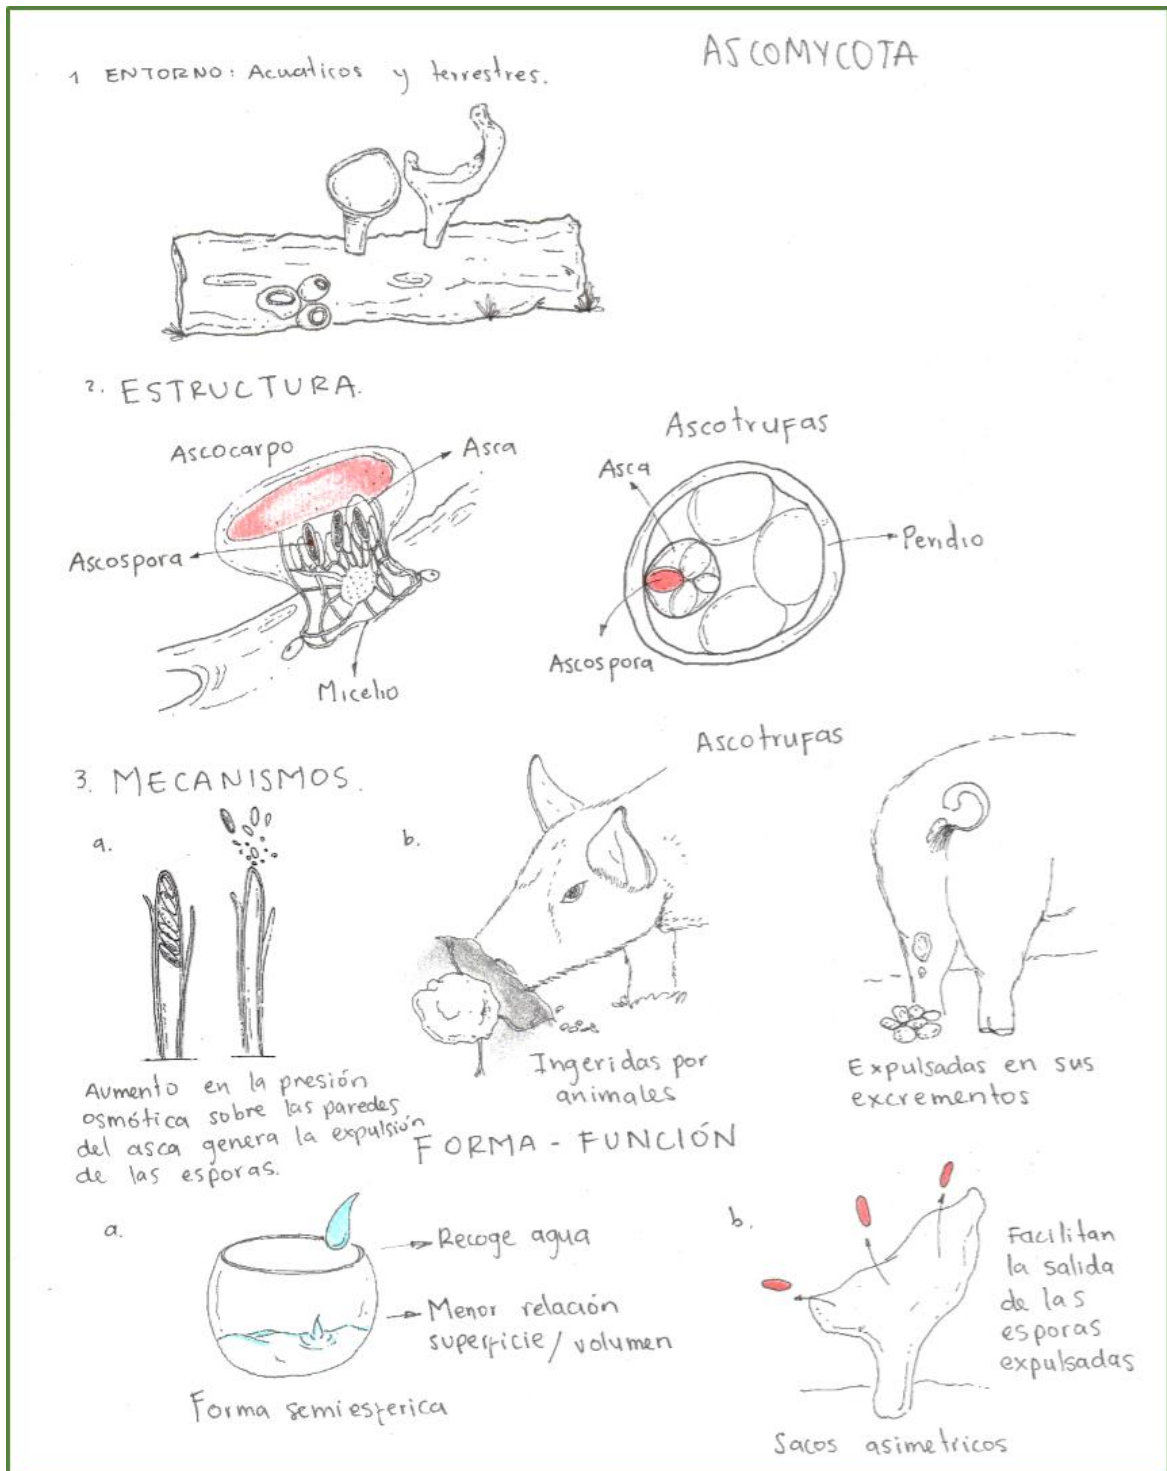 ASCOMYCOTA
1 ENTORNO: Acuaticos y terrestres.
2. ESTRUCTURA.
Ascocarpo
Asca
Ascospora
Micelio
Ascotrufas
Asca
Peridio
Ascospora
3. MECANISMOS.
Ascotrufas
a.
Aumento en la presión
osmótica sobre las paredes
del asca genera la expulsión
de las esporas.
b.
Ingeridas por
animales
Expulsadas en sus
excrementos
FORMA - FUNCIÓN
a.
Recoge agua
Menor relación
superficie/volumen
Forma semiesferica
b.
Facilitan
la salida
de las
esporas
expulsadas
Sacos asimetricos